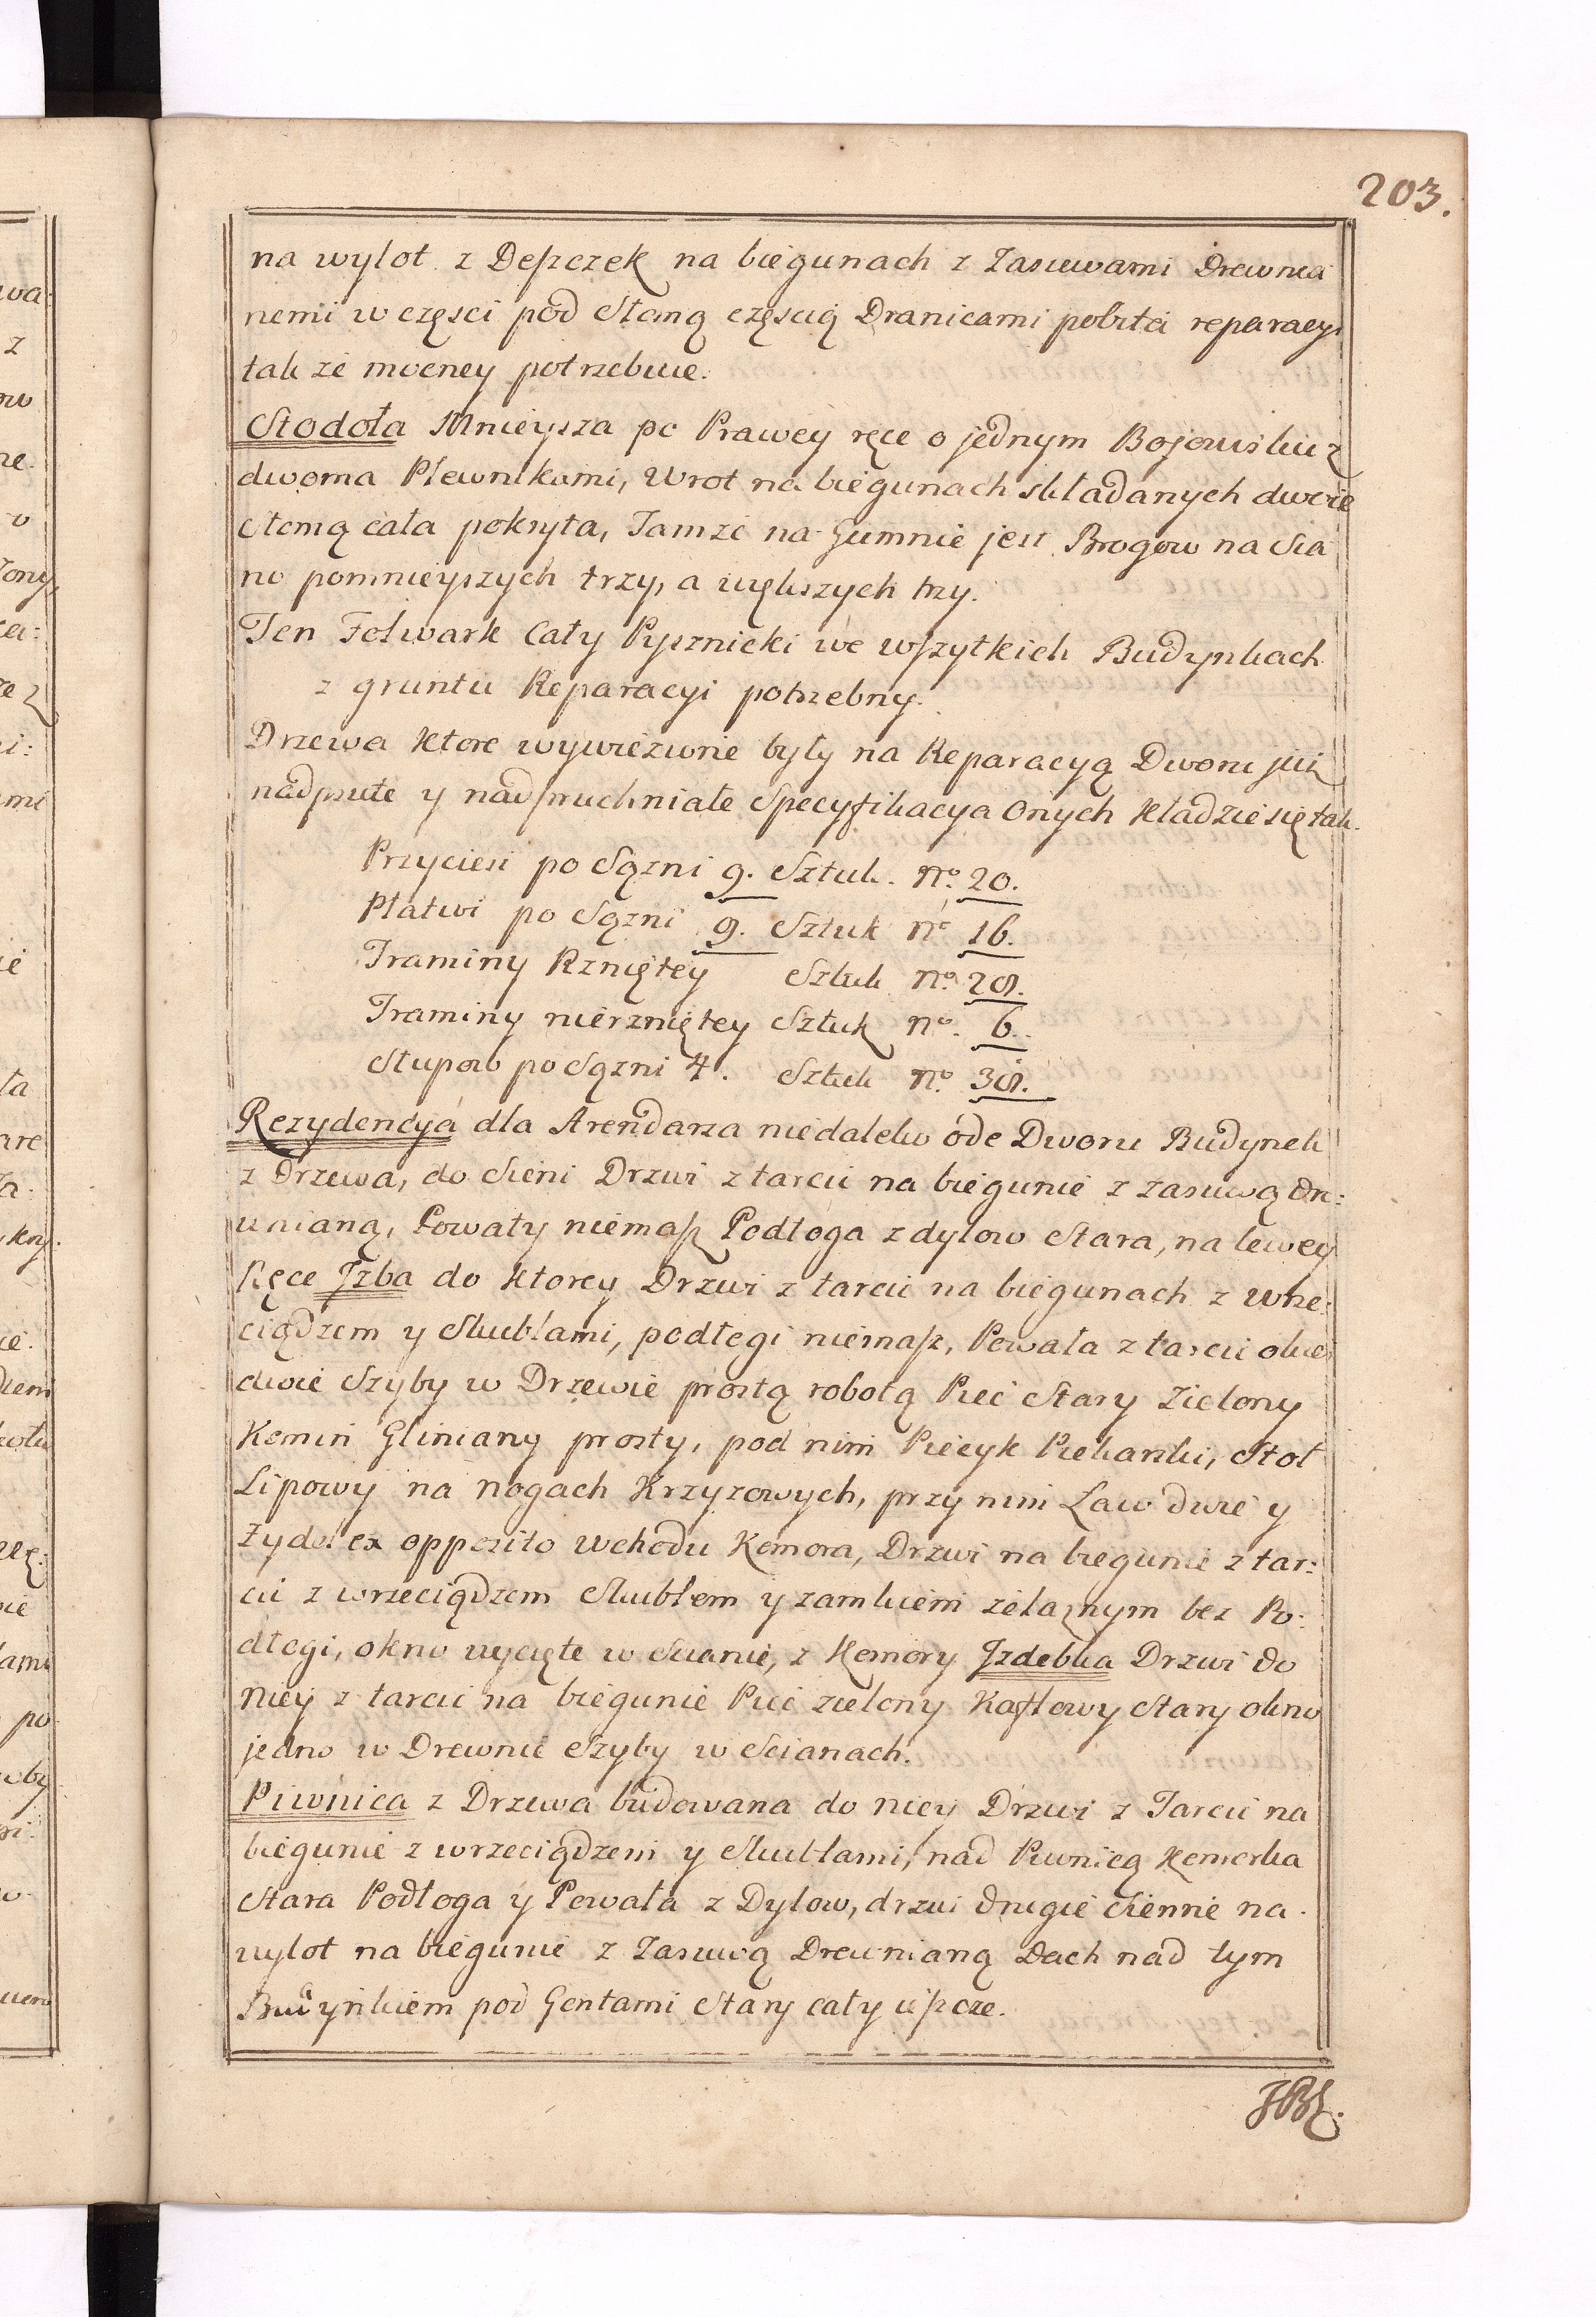 203.
na wylot z Depczek na biegunach z Zasuwami Drewnia
nemi w części pod Słomą częścią Dranicami pobita reparacyi
tak ze mocney potrzebuie.
Stodoła Mnieysza po Prawey ręce o jednym Bojowisku z
dwoma Plewnikami, Wrot na biegunach składanych dwoie
Słomą cała pokryta, Tamze na Gumnie jest Brogow na Sia
no pomnieyszych trzy, a większych trzy.
Ten Folwark Cały Pysznicki we wszytkich Budynkach
z gruntu Reparacyi potrzebny.
Drzewa Ktore wywiezione były na Reparacyą Dworu już
nadpsute y nadpruchniałe Specyfikacya Onych Kładzie się tak.
Przyciesi po Sązni 9. Sztuk. No. 20.
Płatwi po Sązni 9. Sztuk No 16.
Traminy Rzniętey Sztuk No. 28.
Traminy nierzniętey Sztuk No. 6.
Słupow po Sązni 4. Sztuk No. 38.
Rezydencya dla Arendarza niedaleko ode Dworu Budynek
z Drzewa, do Sieni Drzwi z tarcic na biegunie z zasuwą Dre:
wnianą, Powały niemasz Podłoga z dylow Stara, na lewey
Ręce Jzba do Ktorey Drzwi z tarcic na biegunach z Wrze:
ciądzem y Skublami, podłogi niemasz, Powała z tarcic okien
dwie Szyby w Drzewie prostą robotą Piec Stary Zielony
Komin Gliniany prosty, pod nim Piecyk Piekarski, Stoł
Lipowy na nogach Krzyzowych, przy nim Ław dwie y
Zydel ex opposito Wchodu Komora, Drzwi na biegunie z tar:
cic z wrzeciądzem Skublem y zamkiem zelaznym bez Po:
dłogi, okno wycięte w Scianie, z Komory Jzdebka Drzwi do
Niey z tarcic na biegunie Piec zielony Kaflowy Stary okno
jedno w Drewnie Szyby w Scianach.
Piwnica z Drzewa budowana do Niey Drzwi z Tarcic na
biegunie z wrzeciądzem y Skublami, nad Piwnicą Komorka
Stara Podłoga y Powała z Dylow, drzwi drugie Sienne na
wylot na biegunie z Zasuwą Drewnianą Dach nad tym
Budynkiem pod Gontami Stary cały